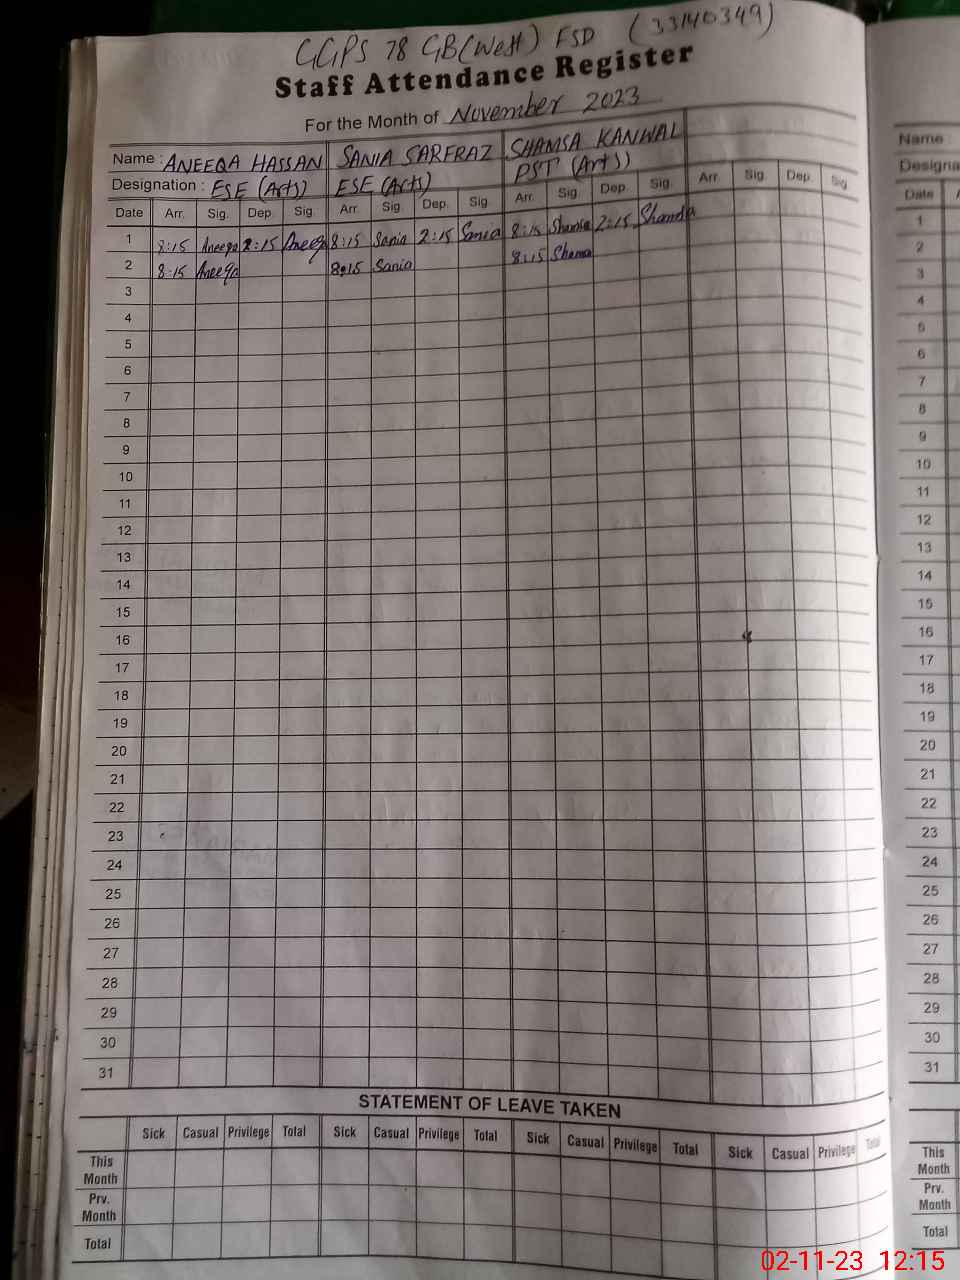 GGPS 78 GB (West) FSD (33140349)
Staff Attendance Register
For the Month of November 2023
Name : ANEEQA HASSAN SANIA SARFRAZ SHAMSA KANWAL
Designation : ESE (Arts) ESE (Arts) PST (Arts)
Date Arr. Sig. Dep. Sig. Arr. Sig. Dep. Sig. Arr. Sig. Dep. Sig. Arr. Sig. Dep. Sig.
1 8:15 Aneeqa 2:15 Aneeqa 8:15 Sania 2:15 Sania 8:15 Shamsa 2:15 Shamsa
2 8:15 Aneeqa 8:15 Sania 8:15 Shamsa
3
4
5
6
7
8
9
10
11
12
13
14
15
16
17
18
19
20
21
22
23
24
25
26
27
28
29
30
31
STATEMENT OF LEAVE TAKEN
Sick Casual Privilege Total Sick Casual Privilege Total Sick Casual Privilege Total Sick Casual Privilege Total
This Month
Prv. Month
Total
Name :
Designa
Date
1
2
3
4
5
6
7
8
9
10
11
12
13
14
15
16
17
18
19
20
21
22
23
24
25
26
27
28
29
30
31
This Month
Prv. Month
Total
02-11-23 12:15